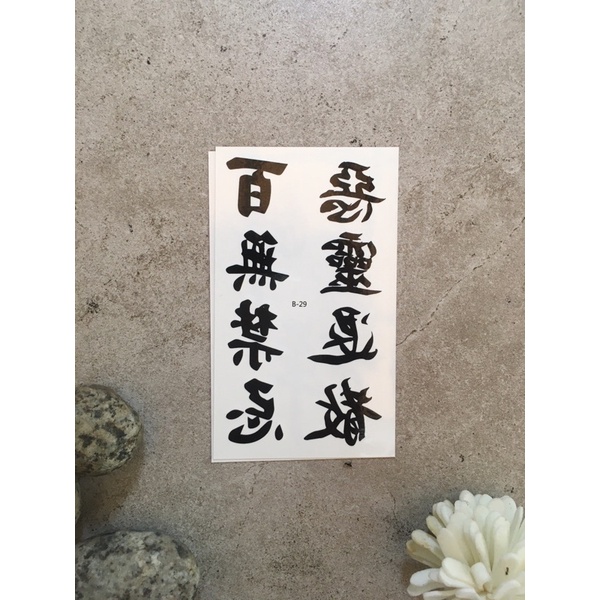 百無禁忌
B-29
惡靈退散